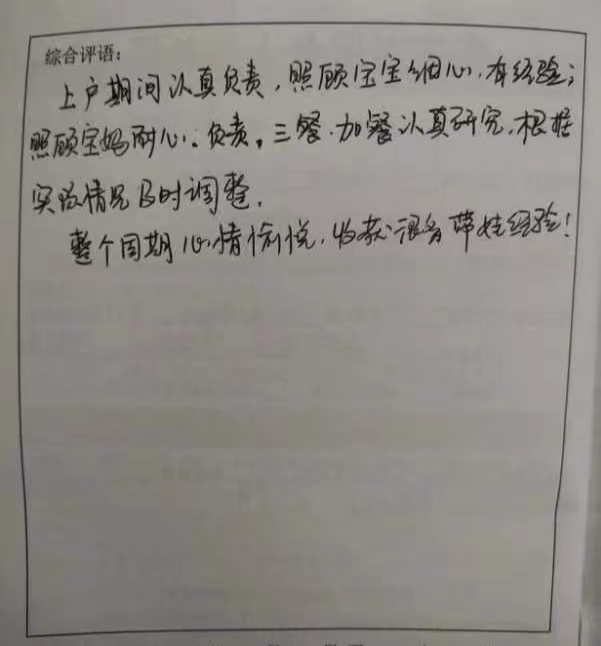 综合评语：
上户期间认真负责，照顾宝宝细心，有经验；
照顾宝妈耐心、负责，三餐、加餐认真研究，根据
实际情况及时调整。
整个周期心情愉悦，收获很多带娃经验！